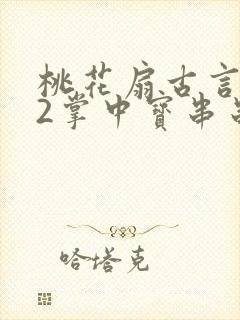 桃花扇古言
2掌中寶串
哈塔克